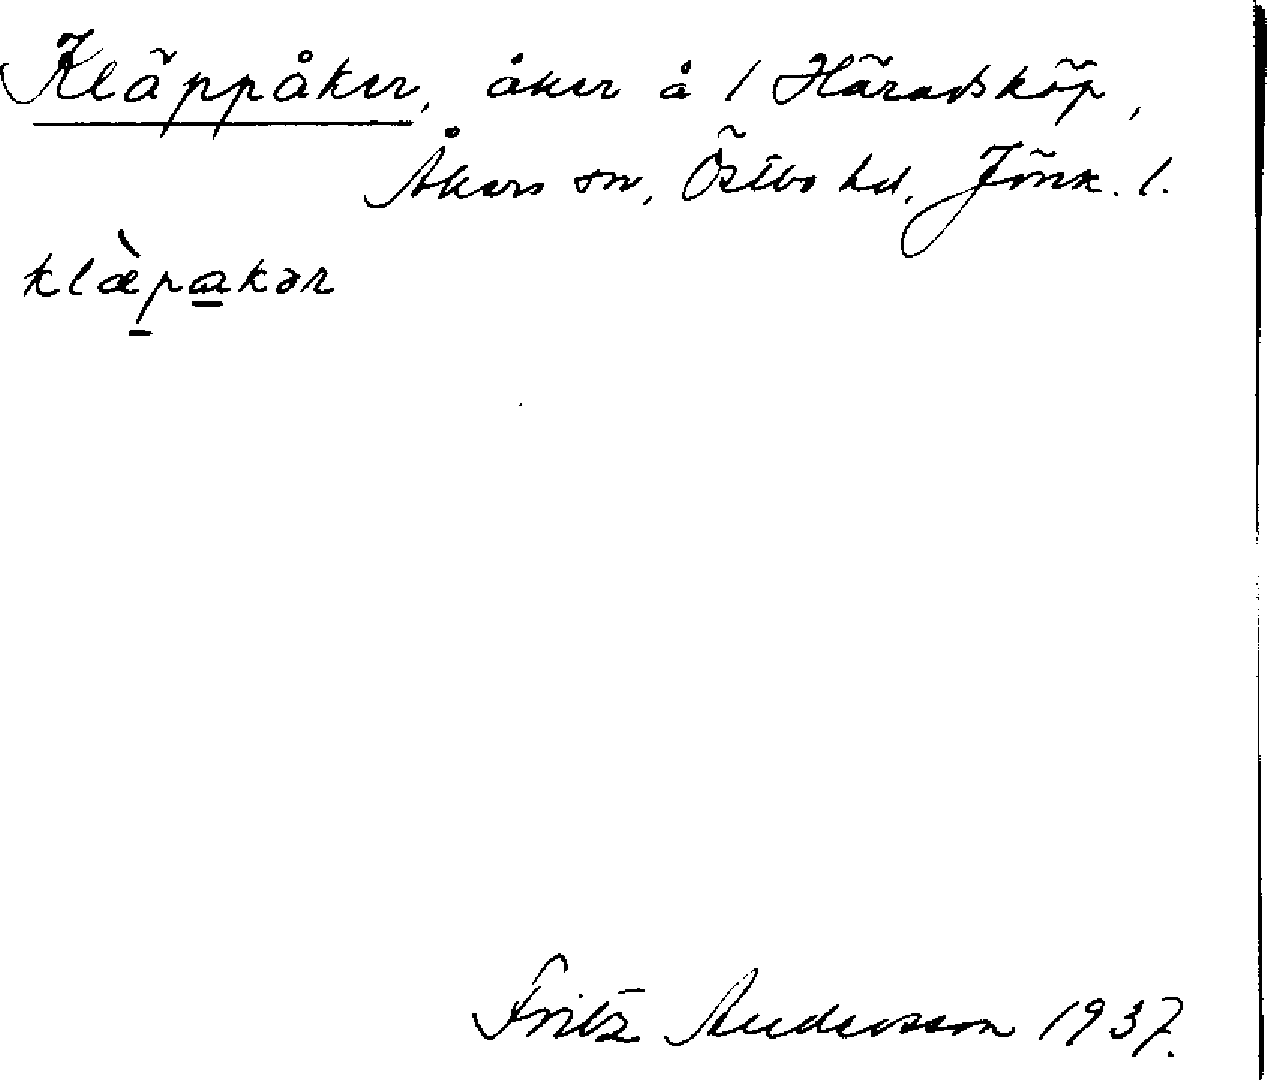 Kläppåker, åker å 1 Häradsköp,
Åkers sn, Östbo hd, Jönk. l.
klæ̀p̱a̱kər
Fritz Andersson 1937.